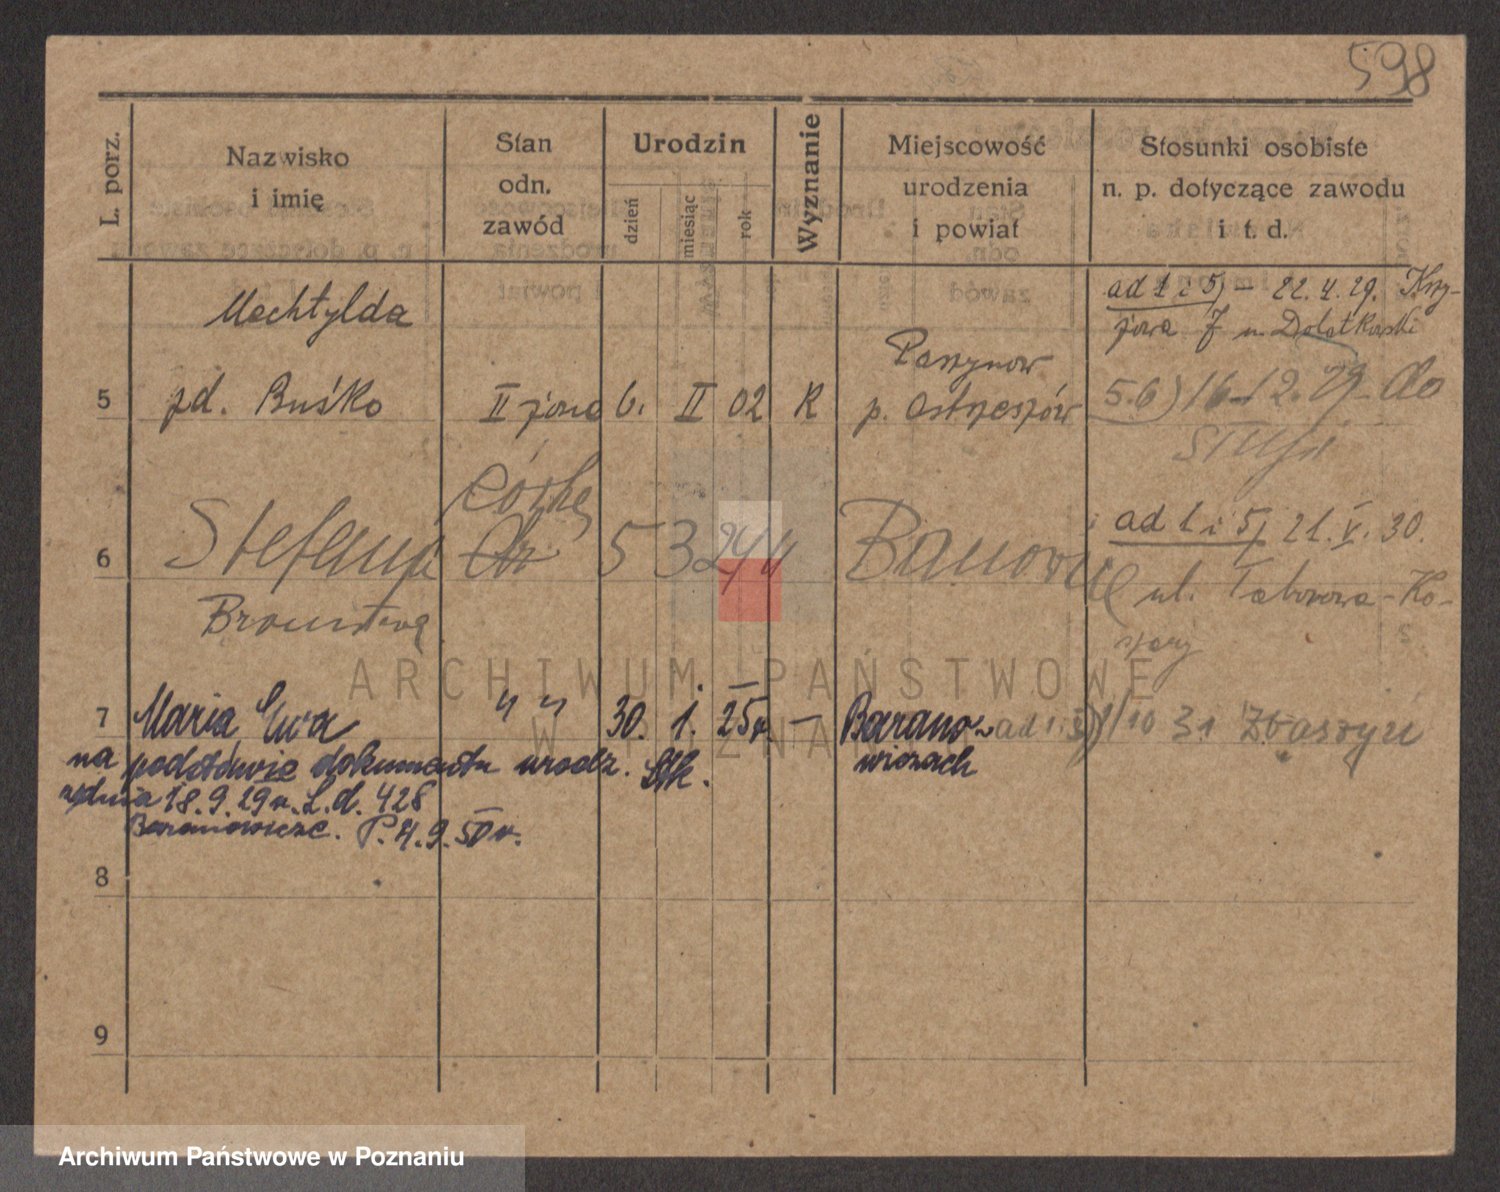 598
L. porz.
Nazwisko
i imię
Stan
odn.
zawód
Urodzin
dzień
miesiąc
rok
Wyznanie
Miejscowość
urodzenia
i powiat
Stosunki osobiste
n. p. dotyczące zawodu
i t. d.
5
Mechtylda
zd. Buśko
II żona
6. II 02
R
p. Ostrzeszów
ad 1 i 5) - 22.4.29. Krzy-
żowa 7
5.6) 16-12.29 do
6
Stefania
córka
5 3 24
ad 1 i 5) 21. V. 30.
ul. Taborowa - Ko-
szary
7
Maria Ewa
" "
30. 1. 25r
—
Barano-
wiczach
ad 1. 5) 1/10 31 Zbąszyń
na podstawie dokumentu urodz.
z dnia 18.9.29 r. L.d. 428
Baranowicze. P. 4.9.50 r.
8
9
ARCHIWUM PAŃSTWOWE
W POZNANIU
Archiwum Państwowe w Poznaniu